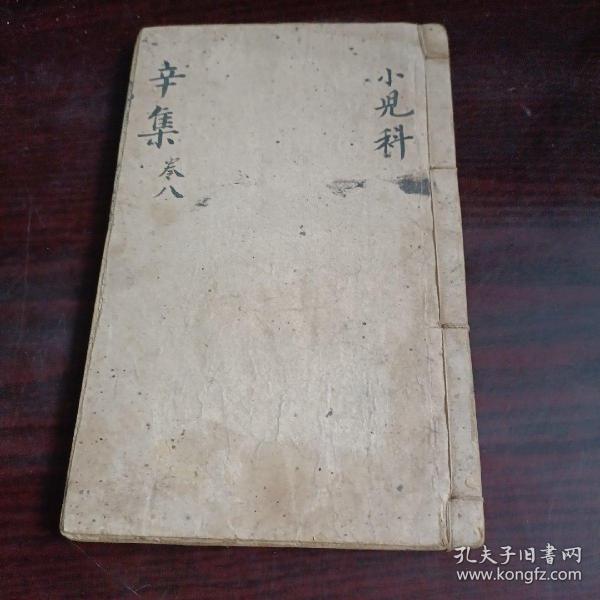 小児科
辛集
卷八
孔夫子旧书网
www.kongfz.com